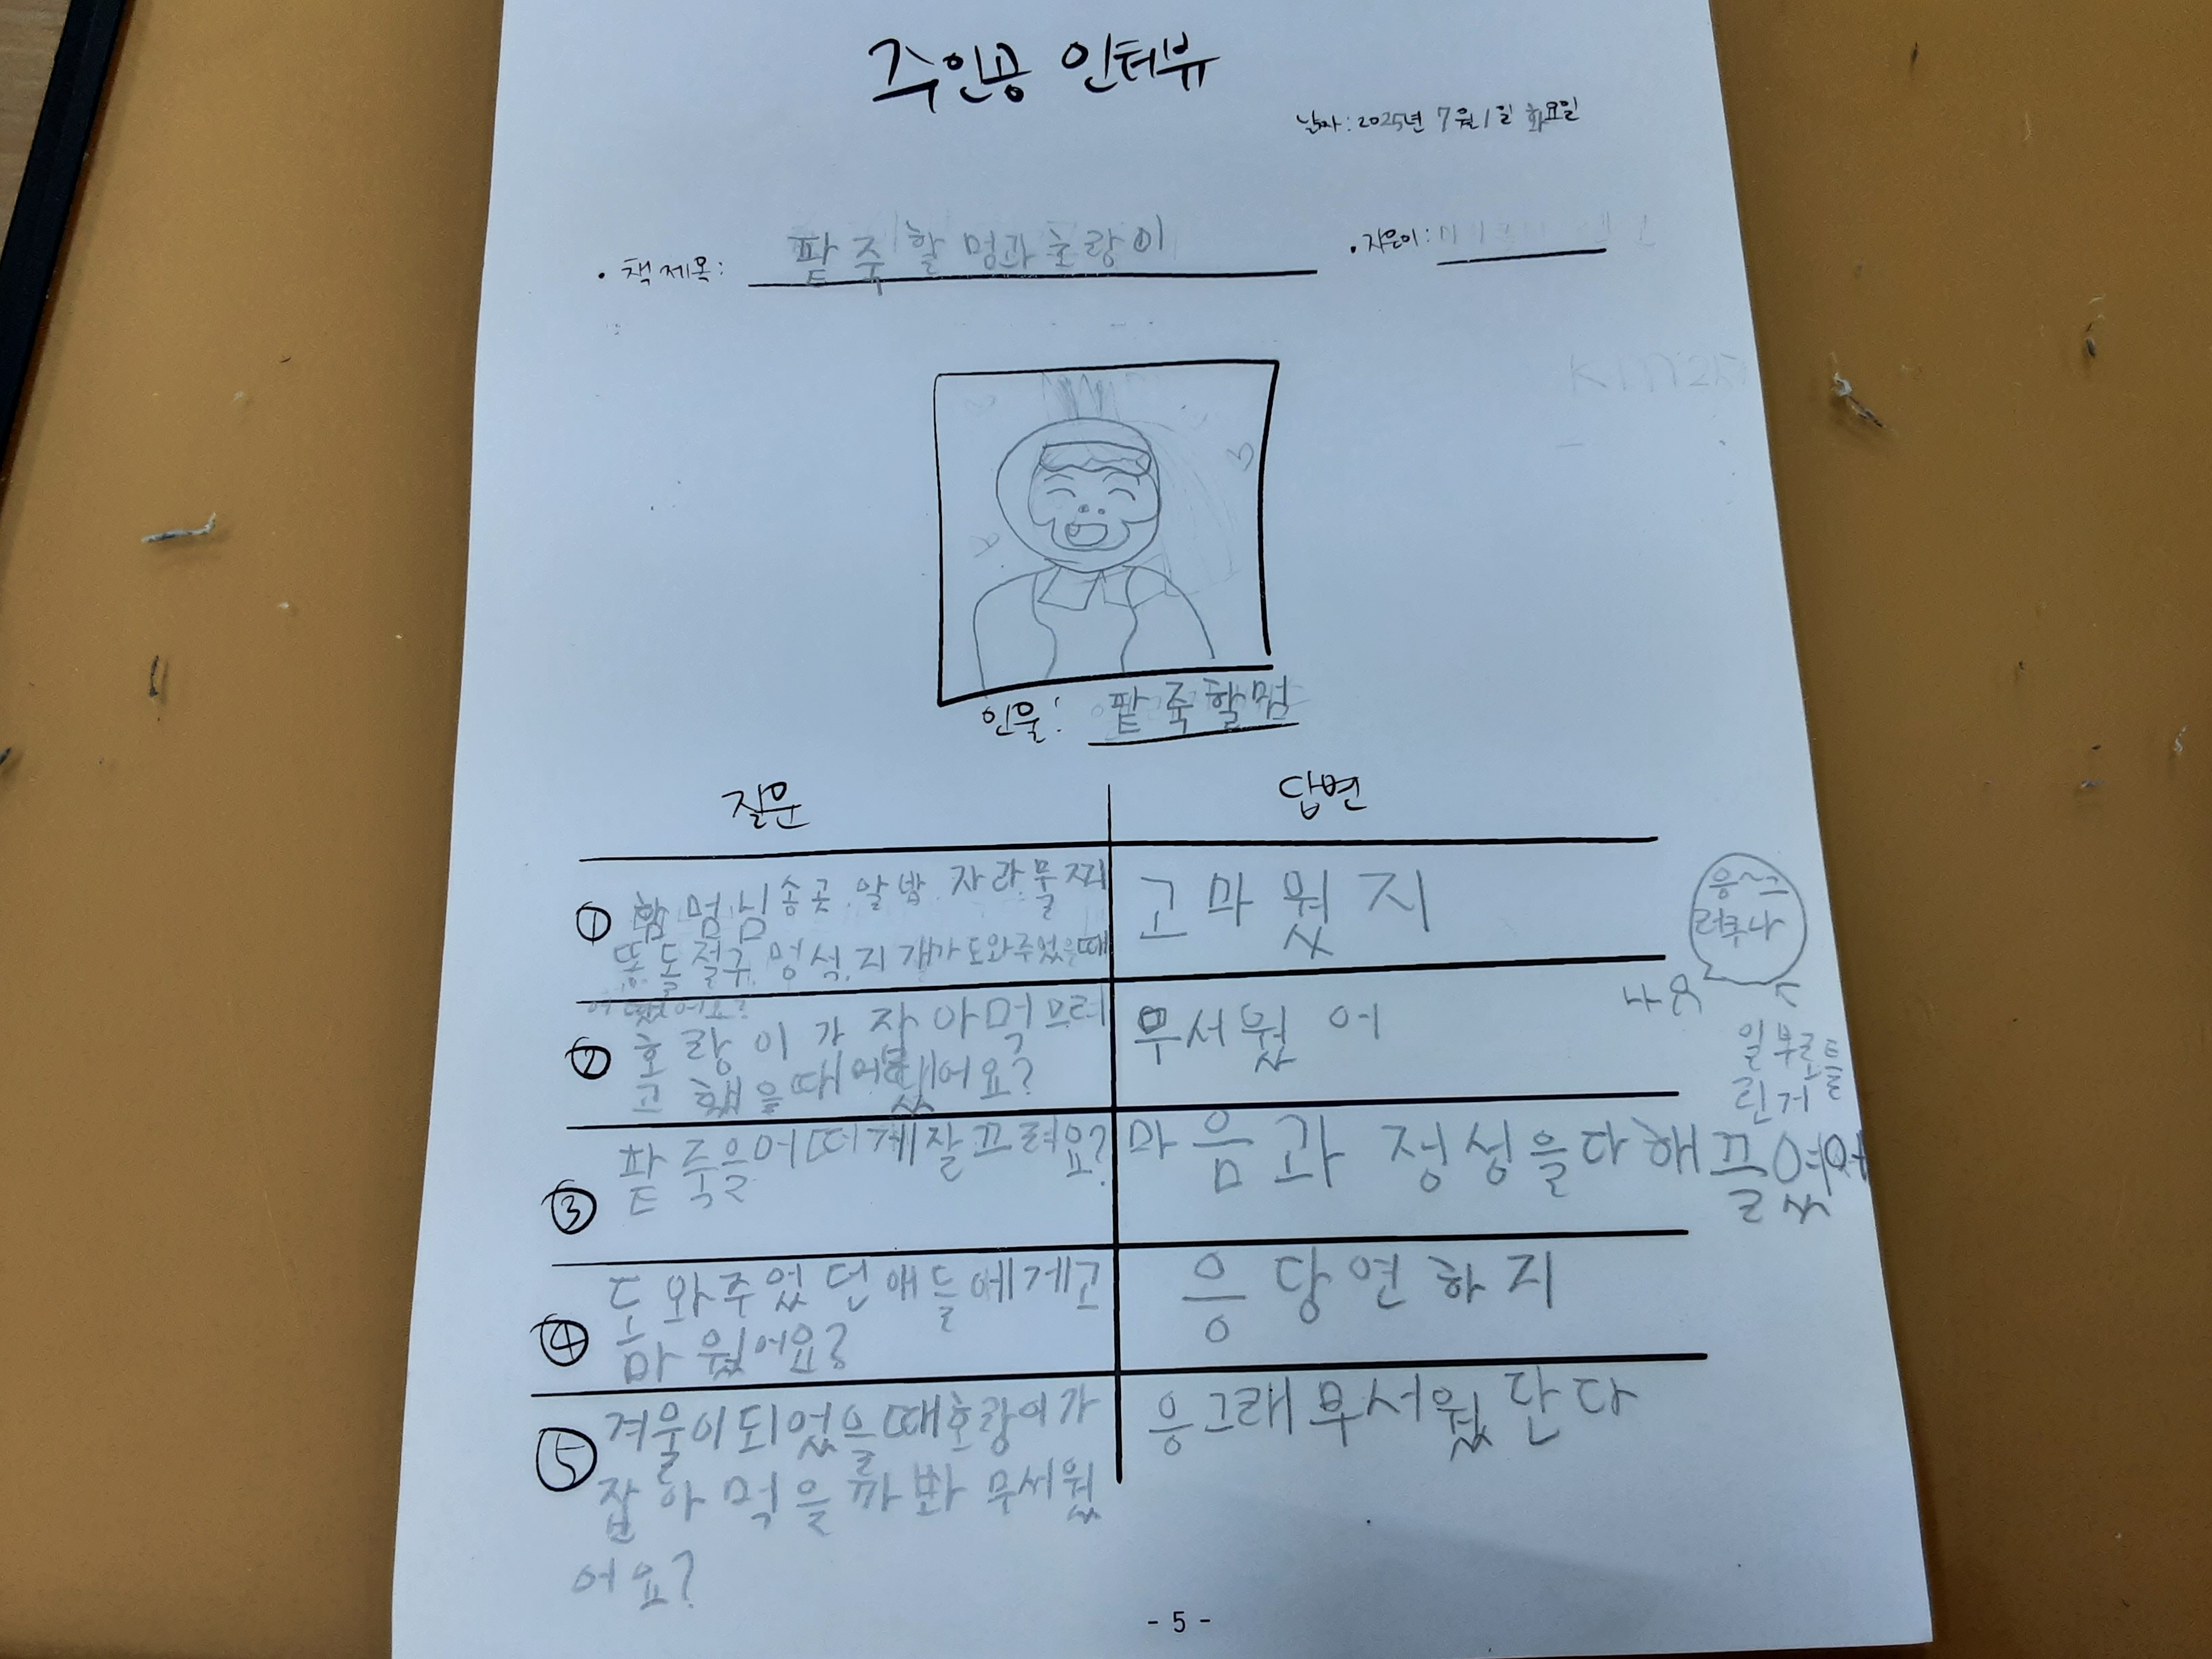 주인공 인터뷰
날짜: 2025년 7월 1일 화요일
• 책 제목: 팥죽할멈과호랑이
• 지은이:
인물: 팥죽할멈
질문 답변
① 할멈님송곳.알밤.자라.물찌
똥.돌절구.멍석.지개가도와주었을때
어땠어요?
고마웠지
② 호랑이가 잡아먹으려
고 했을때어땠어요?
무서웠어
③ 팥죽을어떠게잘끄려요?
마음과 정성을다해끌였어
④ 도와주었던애들에게고
마웠어요?
응당연하지
⑤ 겨울이되었을때호랑이가
잡아먹을까봐 무서웠
어요?
응그래무서웠단다
응~그
러쿠나
일부로틀
린거
- 5 -